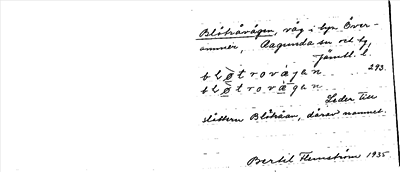 Blötråvägen, väg i byn Över-
ammer, Ragunda sn och tg,
Jämtl. l.
bløtrovägen 293.
bløtrovägan
Leder till
slåttern Blötråan, därav namnet.
Bertil Flemström 1935